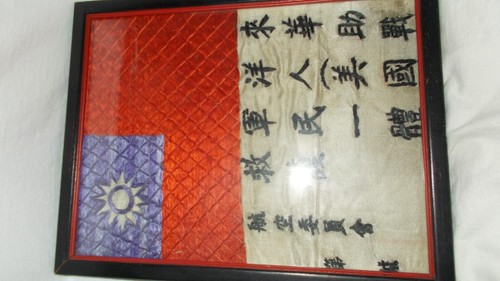 來華助戰
洋人(美國
軍民一體
救護
航空委員會
第 號